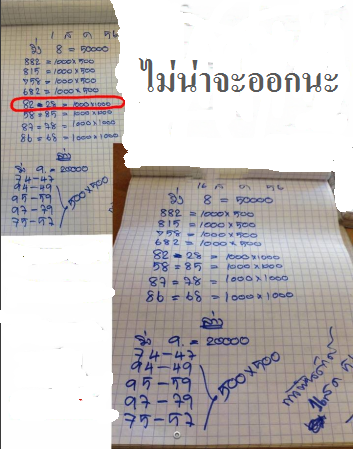 1 ส ค 56
วิ่ง 8 = 50000
882 = 1000×500
815 = 1000×500
758 = 1000×500
682 = 1000×500
82 - 28 = 1000×1000
58 = 85 = 1000×1000
87 = 78 = 1000×1000
86 = 68 = 1000×1000
ล่าง
วิ่ง 9. = 20000
74-47
94-49
95-59
97-79
75-57
500×500
ไม่น่าจะออกนะ
16 ส ค 56
วิ่ง 8 = 50000
882 = 1000×500
815 = 1000×500
758 = 1000×500
682 = 1000×500
82 - 28 = 1000×1000
58 = 85 = 1000×1000
87 = 78 = 1000×1000
86 = 68 = 1000×1000
ล่าง
วิ่ง 9. = 20000
74-47
94-49
95-59
97-79
75-57
500×500